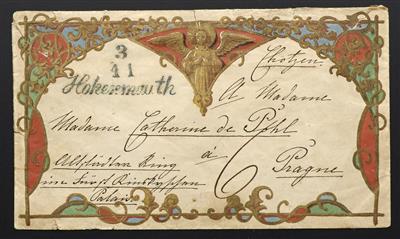 3
11
Hohenmauth
Chotzen.
A Madame
Madame Catherine de Pohl
Altstädter Ring
à
Prague
im Fürst Kinskyschen
Palais
6